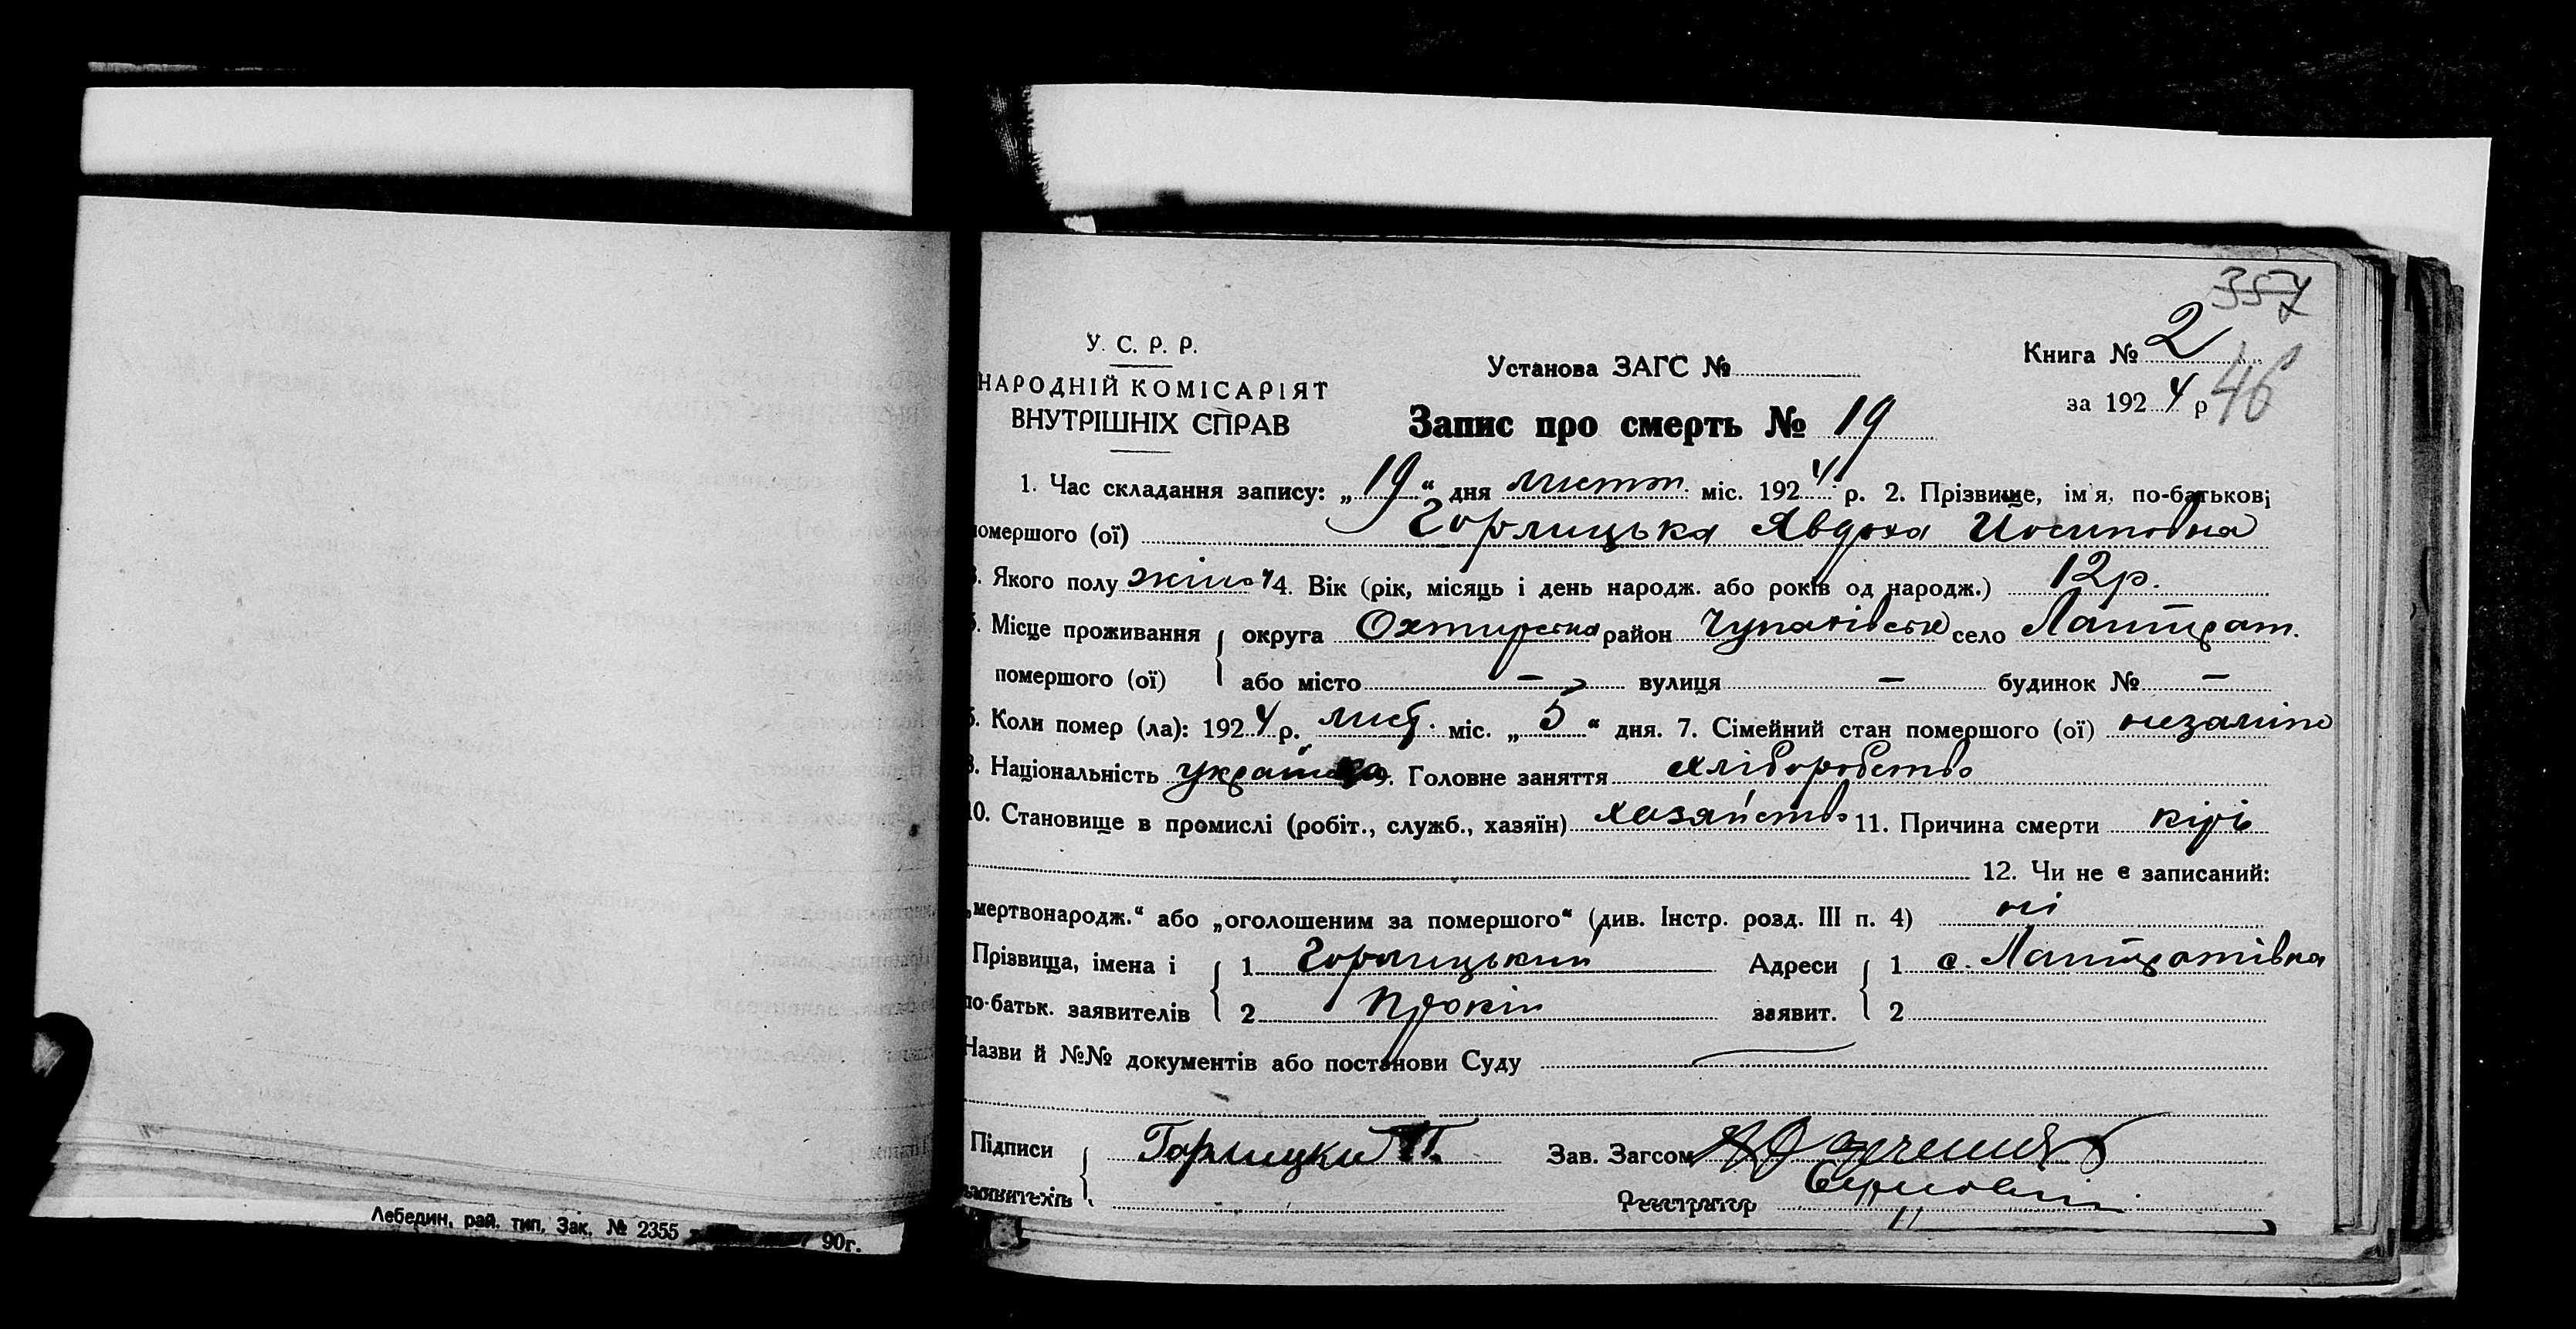 357
У. С. Р. Р.
НАРОДНІЙ КОМІСАРІЯТ
ВНУТРІШНІХ СПРАВ
Установа ЗАГС №
Книга № 2
за 1924 р
46
Запис про смерть № 19
1. Час складання запису: „19“ дня листп. міс. 1924 р. 2. Прізвище, ім'я, по-батькові
помершого (ої) Горлицька Явдоха Йосиповна
3. Якого полу жіноч 4. Вік (рік, місяць і день народж. або років од народж.) 12р.
5. Місце проживання округа Охтирська район Чупахівськ село Лантрат.
помершого (ої) або місто — вулиця — будинок № —
6. Коли помер (ла): 1924 р. лист. міс. „5“ дня. 7. Сімейний стан помершого (ої) незаміж
8. Національність українка 9. Головне заняття хліборобство
10. Становище в промислі (робіт., служб., хазяїн) хазяйство 11. Причина смерти кірь
12. Чи не є записаний:
„мертвонародж.“ або „оголошеним за помершого“ (див. Інстр. розд. III п. 4) ні
Прізвища, імена і 1 Горлицький Адреси 1 с. Лантратівка
по-батьк. заявителів 2 Прокіп заявит. 2
Назви й №№ документів або постанови Суду
Підписи Горлицки П. Зав. Загсом
заявителів Реєстратор
Лебедин, рай. тип. Зак. № 2355 90г.